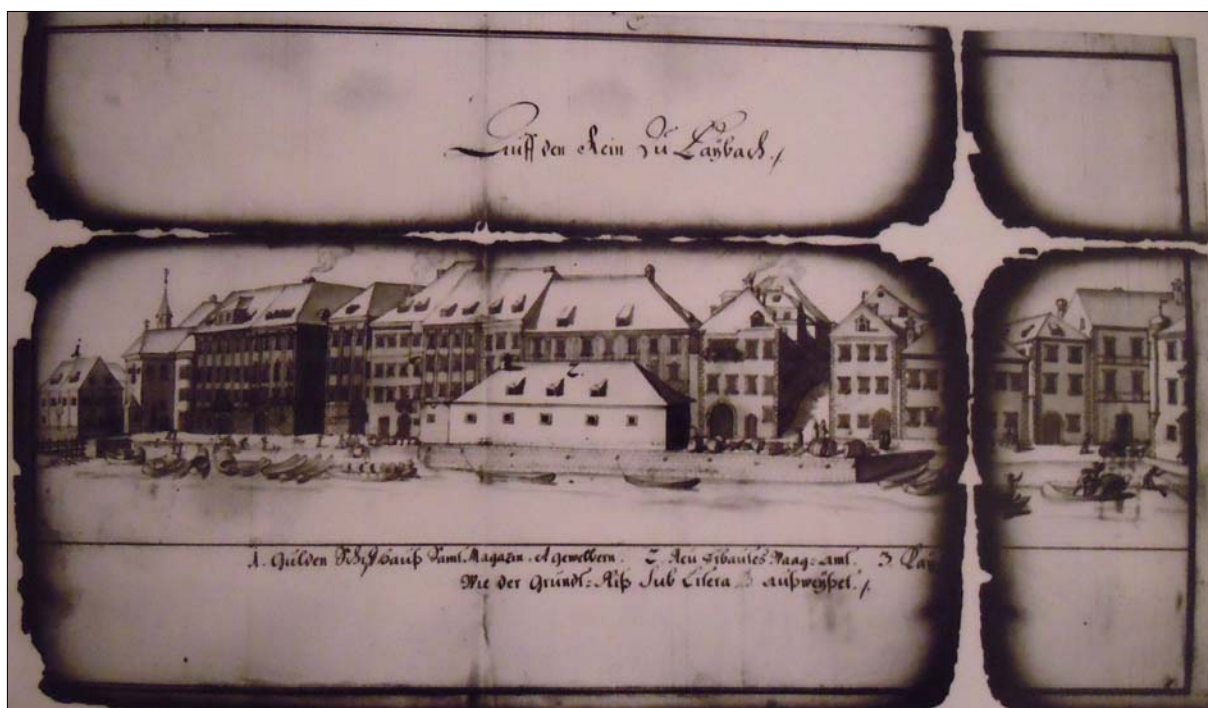 Auff den Rein Zu Laÿbach ./.
2
1. Gulden Schiff Hauß Samt Magazin. et gewelbern. 2. Neu Erbautes Waag-amt. 3. Laÿ
Wie der Grundt-Riß Sub Litera B außweÿset ./.